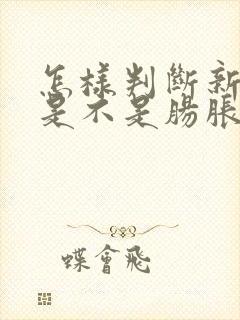 怎樣判斷新
是不是腸脹
蝶會飛